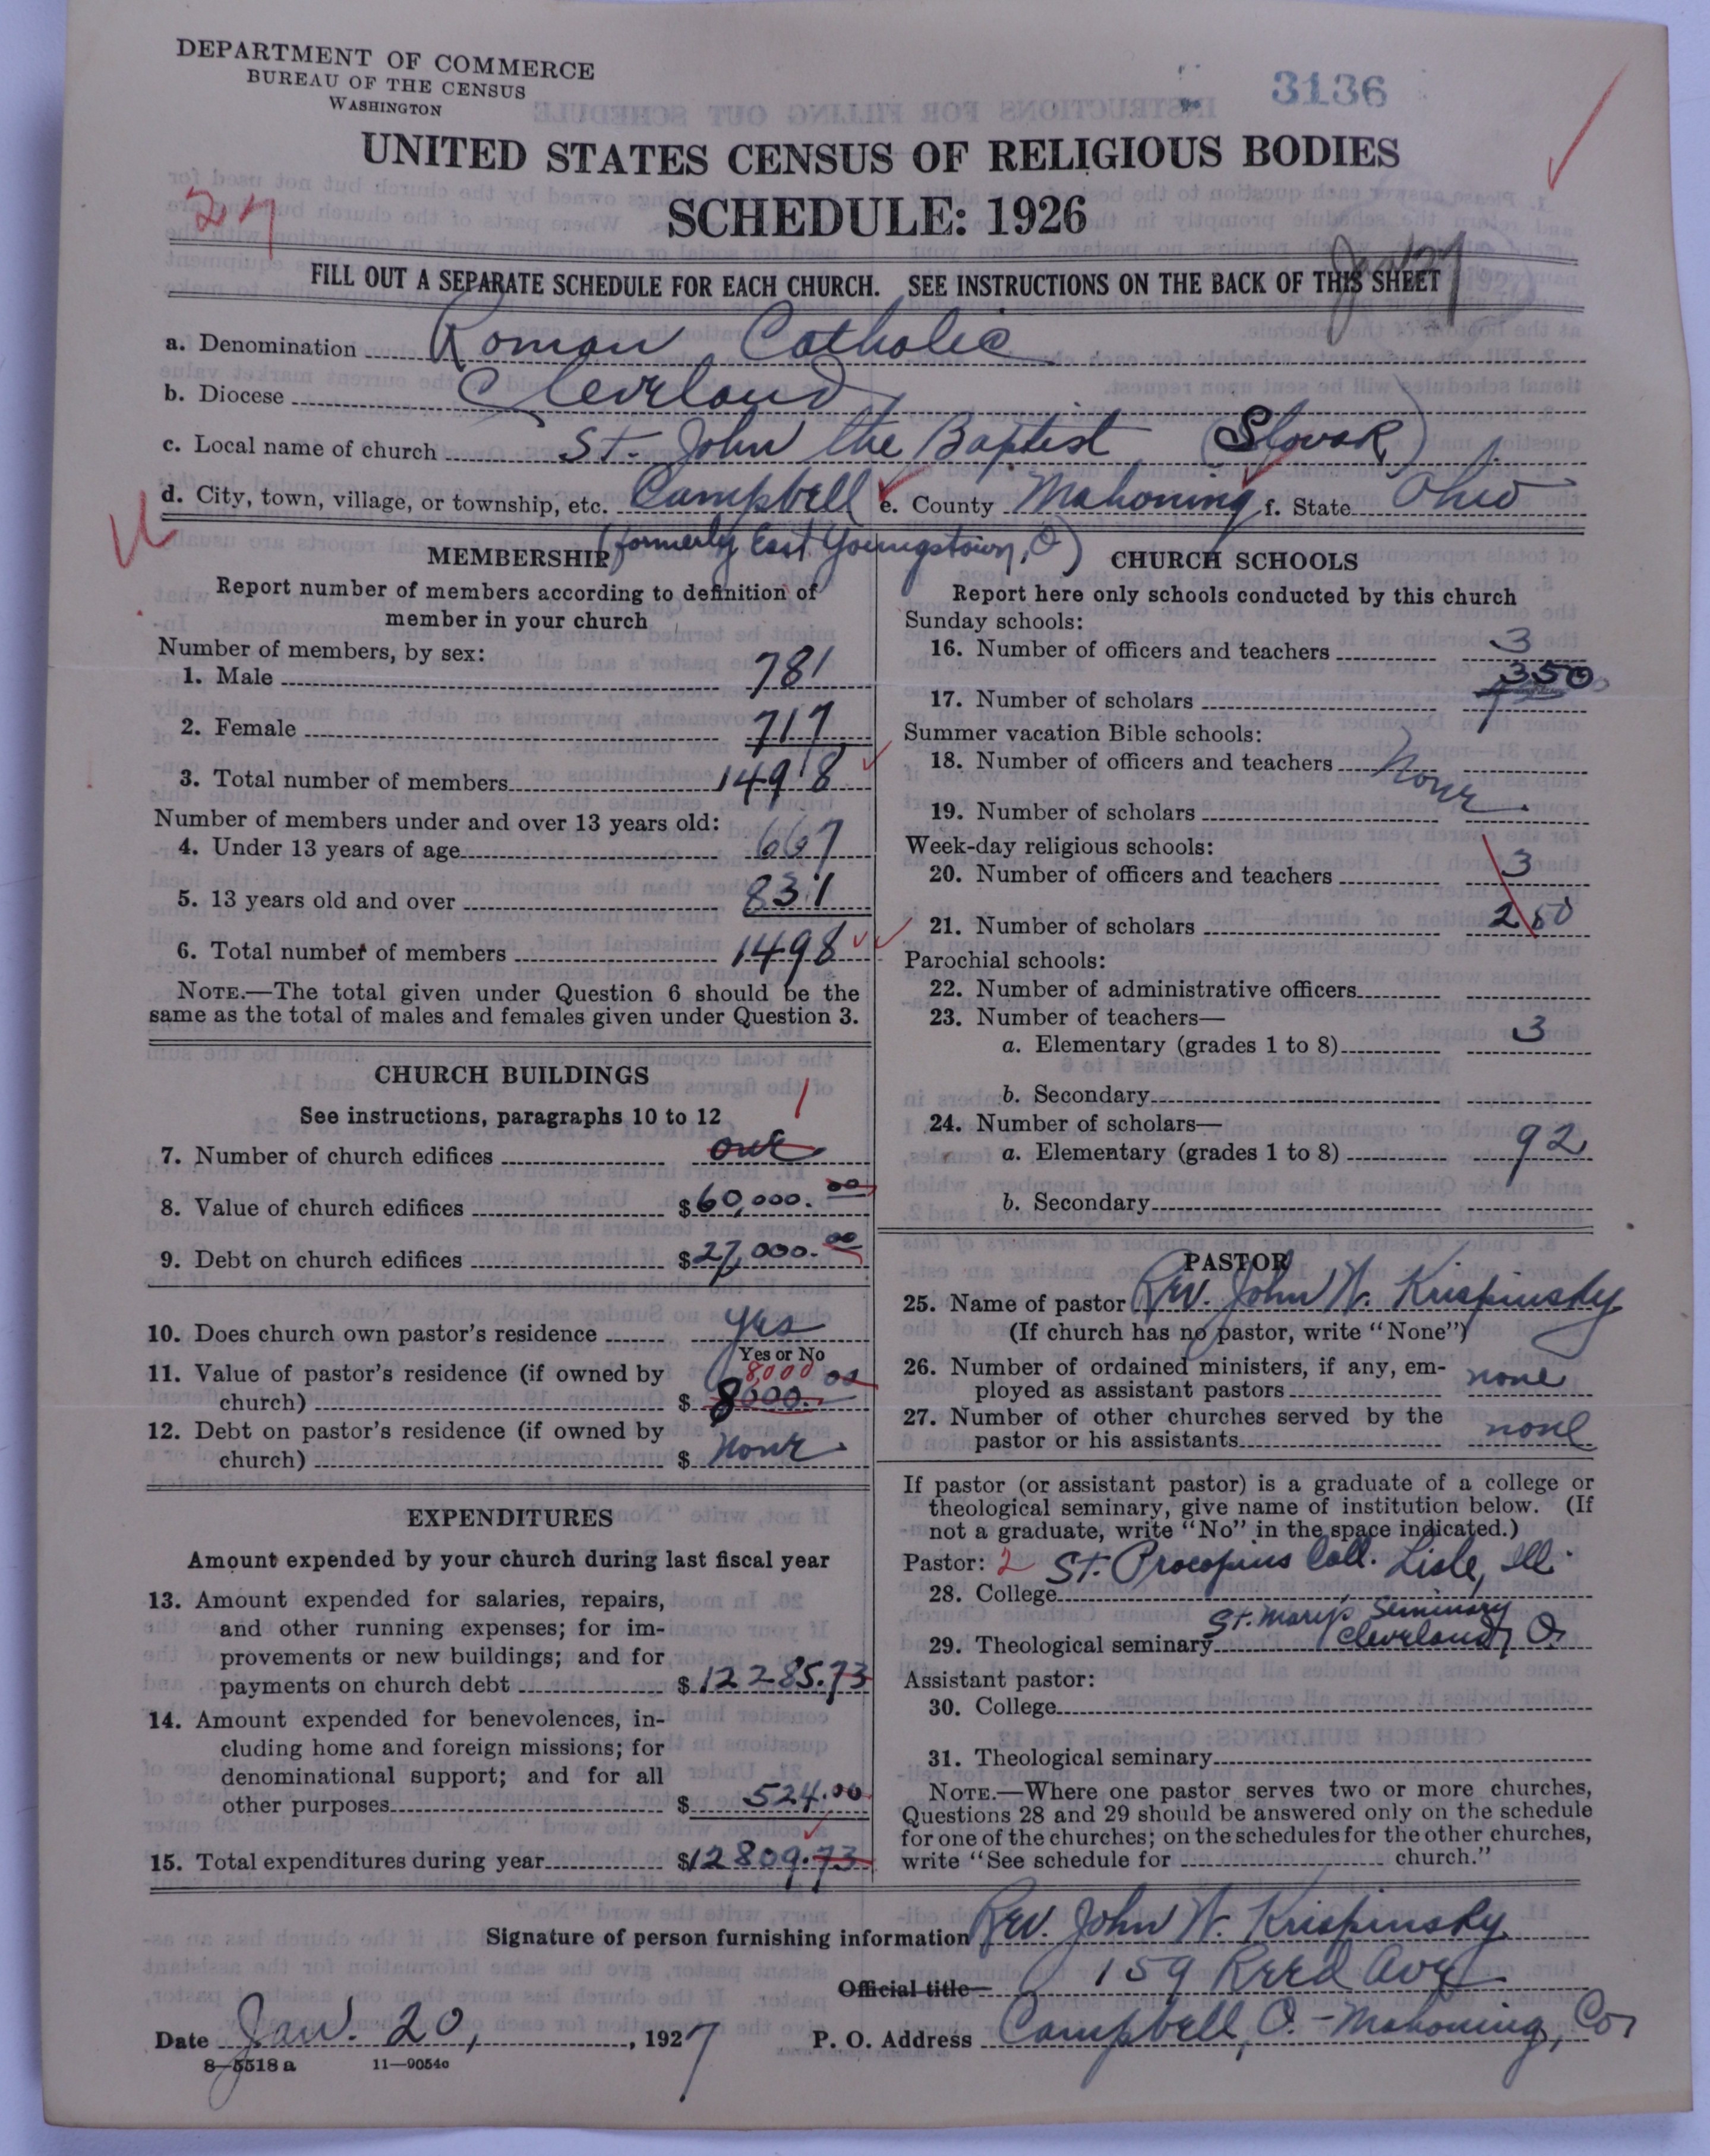 DEPARTMENT OF COMMERCE
BUREAU OF THE CENSUS
WASHINGTON
3136
UNITED STATES CENSUS OF RELIGIOUS BODIES
SCHEDULE: 1926
27
FILL OUT A SEPARATE SCHEDULE FOR EACH CHURCH. SEE INSTRUCTIONS ON THE BACK OF THIS SHEET
a. Denomination Roman Catholic
b. Diocese Cleveland
c. Local name of church St. John the Baptist (Slovak)
d. City, town, village, or township, etc. Campbell e. County Mahoning f. State Ohio
(formerly East Youngstown, O)
MEMBERSHIP
Report number of members according to definition of
member in your church
Number of members, by sex:
1. Male 781
2. Female 717
3. Total number of members 1498
Number of members under and over 13 years old:
4. Under 13 years of age 667
5. 13 years old and over 831
6. Total number of members 1498
NOTE.—The total given under Question 6 should be the
same as the total of males and females given under Question 3.
CHURCH BUILDINGS
See instructions, paragraphs 10 to 12
1
7. Number of church edifices one
8. Value of church edifices $60,000.00
9. Debt on church edifices $27,000.00
10. Does church own pastor's residence yes
Yes or No
11. Value of pastor's residence (if owned by
8,000
church) $ 8000.00
12. Debt on pastor's residence (if owned by
church) $ none
EXPENDITURES
Amount expended by your church during last fiscal year
13. Amount expended for salaries, repairs,
and other running expenses; for im-
provements or new buildings; and for
payments on church debt $12285.73
14. Amount expended for benevolences, in-
cluding home and foreign missions; for
denominational support; and for all
other purposes $ 524.00
15. Total expenditures during year $12809.73
CHURCH SCHOOLS
Report here only schools conducted by this church
Sunday schools:
16. Number of officers and teachers 3
17. Number of scholars 350
Summer vacation Bible schools:
18. Number of officers and teachers None
19. Number of scholars
Week-day religious schools:
20. Number of officers and teachers 3
21. Number of scholars 250
Parochial schools:
22. Number of administrative officers
23. Number of teachers—
a. Elementary (grades 1 to 8) 3
b. Secondary
24. Number of scholars—
a. Elementary (grades 1 to 8) 92
b. Secondary
PASTOR
25. Name of pastor Rev. John W. Krispinsky
(If church has no pastor, write "None")
26. Number of ordained ministers, if any, em-
ployed as assistant pastors none
27. Number of other churches served by the
pastor or his assistants none
If pastor (or assistant pastor) is a graduate of a college or
theological seminary, give name of institution below. (If
not a graduate, write "No" in the space indicated.)
Pastor: 2 St. Procopius Coll. Lisle, Ill.
28. College
St. Mary's Seminary
29. Theological seminary Cleveland, O.
Assistant pastor:
30. College
31. Theological seminary
NOTE.—Where one pastor serves two or more churches,
Questions 28 and 29 should be answered only on the schedule
for one of the churches; on the schedules for the other churches,
write "See schedule for church."
Signature of person furnishing information Rev. John W. Krispinsky
Official title 159 Reed Ave
Date Jan. 20, 1927 P. O. Address Campbell, O. - Mahoning, Co.
8—5518 a 11—9054c